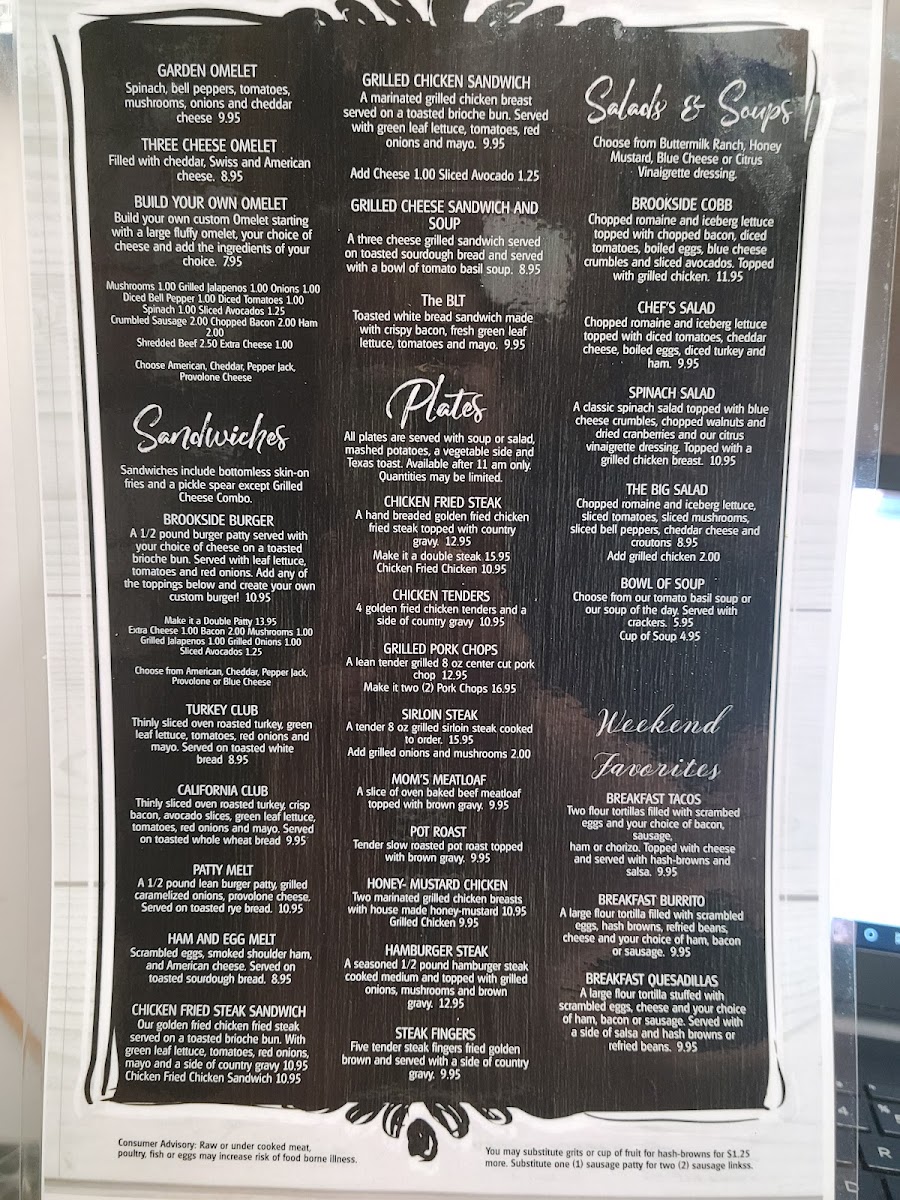 GARDEN OMELET
Spinach, bell peppers, tomatoes,
mushrooms, onions and cheddar
cheese 9.95
THREE CHEESE OMELET
Filled with cheddar, Swiss and American
cheese. 8.95
BUILD YOUR OWN OMELET
Build your own custom Omelet starting
with a large fluffy omelet, your choice of
cheese and add the ingredients of your
choice. 7.95
Mushrooms 1.00 Grilled Jalapenos 1.00 Onions 1.00
Diced Bell Pepper 1.00 Diced Tomatoes 1.00
Spinach 1.00 Sliced Avocados 1.25
Crumbled Sausage 2.00 Chopped Bacon 2.00 Ham
2.00
Shredded Beef 2.50 Extra Cheese 1.00
Choose American, Cheddar, Pepper Jack,
Provolone Cheese
Sandwiches
Sandwiches include bottomless skin-on
fries and a pickle spear except Grilled
Cheese Combo.
BROOKSIDE BURGER
A 1/2 pound burger patty served with
your choice of cheese on a toasted
brioche bun. Served with leaf lettuce,
tomatoes and red onions. Add any of
the toppings below and create your own
custom burger! 10.95
Make it a Double Patty 13.95
Extra Cheese 1.00 Bacon 2.00 Mushrooms 1.00
Grilled Jalapenos 1.00 Grilled Onions 1.00
Sliced Avocados 1.25
Choose from American, Cheddar, Pepper Jack,
Provolone or Blue Cheese
TURKEY CLUB
Thinly sliced oven roasted turkey, green
leaf lettuce, tomatoes, red onions and
mayo. Served on toasted white
bread 8.95
CALIFORNIA CLUB
Thinly sliced oven roasted turkey, crisp
bacon, avocado slices, green leaf lettuce,
tomatoes, red onions and mayo. Served
on toasted whole wheat bread 9.95
PATTY MELT
A 1/2 pound lean burger patty, grilled
caramelized onions, provolone cheese.
Served on toasted rye bread. 10.95
HAM AND EGG MELT
Scrambled eggs, smoked shoulder ham,
and American cheese. Served on
toasted sourdough bread. 8.95
CHICKEN FRIED STEAK SANDWICH
Our golden fried chicken fried steak
served on a toasted brioche bun. With
green leaf lettuce, tomatoes, red onions,
mayo and a side of country gravy 10.95
Chicken Fried Chicken Sandwich 10.95
GRILLED CHICKEN SANDWICH
A marinated grilled chicken breast
served on a toasted brioche bun. Served
with green leaf lettuce, tomatoes, red
onions and mayo. 9.95
Add Cheese 1.00 Sliced Avocado 1.25
GRILLED CHEESE SANDWICH AND
SOUP
A three cheese grilled sandwich served
on toasted sourdough bread and served
with a bowl of tomato basil soup. 8.95
The BLT
Toasted white bread sandwich made
with crispy bacon, fresh green leaf
lettuce, tomatoes and mayo. 9.95
Plates
All plates are served with soup or salad,
mashed potatoes, a vegetable side and
Texas toast. Available after 11 am only.
Quantities may be limited.
CHICKEN FRIED STEAK
A hand breaded golden fried chicken
fried steak topped with country
gravy. 12.95
Make it a double steak 15.95
Chicken Fried Chicken 10.95
CHICKEN TENDERS
4 golden fried chicken tenders and a
side of country gravy 10.95
GRILLED PORK CHOPS
A lean tender grilled 8 oz center cut pork
chop 12.95
Make it two (2) Pork Chops 16.95
SIRLOIN STEAK
A tender 8 oz grilled sirloin steak cooked
to order. 15.95
Add grilled onions and mushrooms 2.00
MOM'S MEATLOAF
A slice of oven baked beef meatloaf
topped with brown gravy. 9.95
POT ROAST
Tender slow roasted pot roast topped
with brown gravy. 9.95
HONEY- MUSTARD CHICKEN
Two marinated grilled chicken breasts
with house made honey-mustard 10.95
Grilled Chicken 9.95
HAMBURGER STEAK
A seasoned 1/2 pound hamburger steak
cooked medium and topped with grilled
onions, mushrooms and brown
gravy. 12.95
STEAK FINGERS
Five tender steak fingers fried golden
brown and served with a side of country
gravy. 9.95
Salads & Soups
Choose from Buttermilk Ranch, Honey
Mustard, Blue Cheese or Citrus
Vinaigrette dressing.
BROOKSIDE COBB
Chopped romaine and iceberg lettuce
topped with chopped bacon, diced
tomatoes, boiled eggs, blue cheese
crumbles and sliced avocados. Topped
with grilled chicken. 11.95
CHEF'S SALAD
Chopped romaine and iceberg lettuce
topped with diced tomatoes, cheddar
cheese, boiled eggs, diced turkey and
ham. 9.95
SPINACH SALAD
A classic spinach salad topped with blue
cheese crumbles, chopped walnuts and
dried cranberries and our citrus
vinaigrette dressing. Topped with a
grilled chicken breast. 10.95
THE BIG SALAD
Chopped romaine and iceberg lettuce,
sliced tomatoes, sliced mushrooms,
sliced bell peppers, cheddar cheese and
croutons 8.95
Add grilled chicken 2.00
BOWL OF SOUP
Choose from our tomato basil soup or
our soup of the day. Served with
crackers. 5.95
Cup of Soup 4.95
Weekend
Favorites
BREAKFAST TACOS
Two flour tortillas filled with scrambed
eggs and your choice of bacon,
sausage,
ham or chorizo. Topped with cheese
and served with hash-browns and
salsa. 9.95
BREAKFAST BURRITO
A large flour tortilla filled with scrambled
eggs, hash browns, refried beans,
cheese and your choice of ham, bacon
or sausage. 9.95
BREAKFAST QUESADILLAS
A large flour tortilla stuffed with
scrambled eggs, cheese and your choice
of ham, bacon or sausage. Served with
a side of salsa and hash browns or
refried beans. 9.95
Consumer Advisory: Raw or under cooked meat,
poultry, fish or eggs may increase risk of food borne illness.
You may substitute grits or cup of fruit for hash-browns for $1.25
more. Substitute one (1) sausage patty for two (2) sausage linkss.